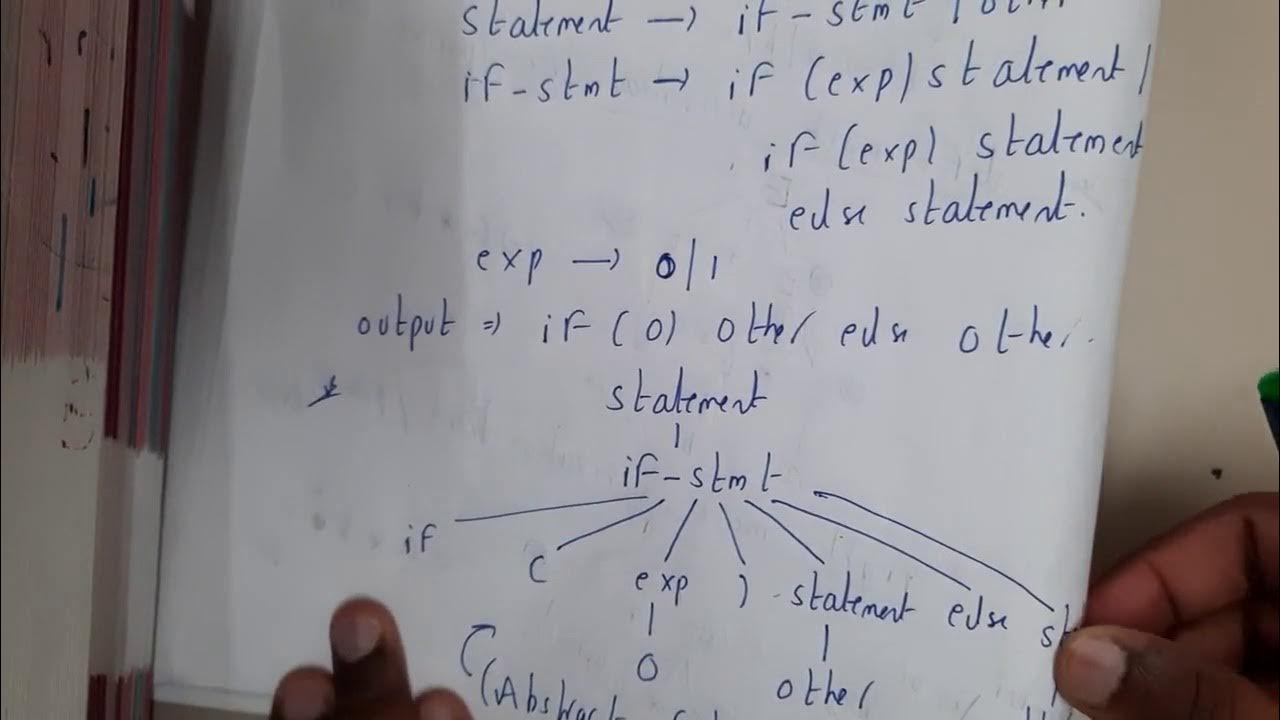 statement → if-stmt |
if-stmt → if (exp) statement |
if (exp) statement
else statement.
exp → 0/1
output ⇒ if (0) other else other.
statement
if-stmt
if ( exp ) statement else
0 other
(Abstract